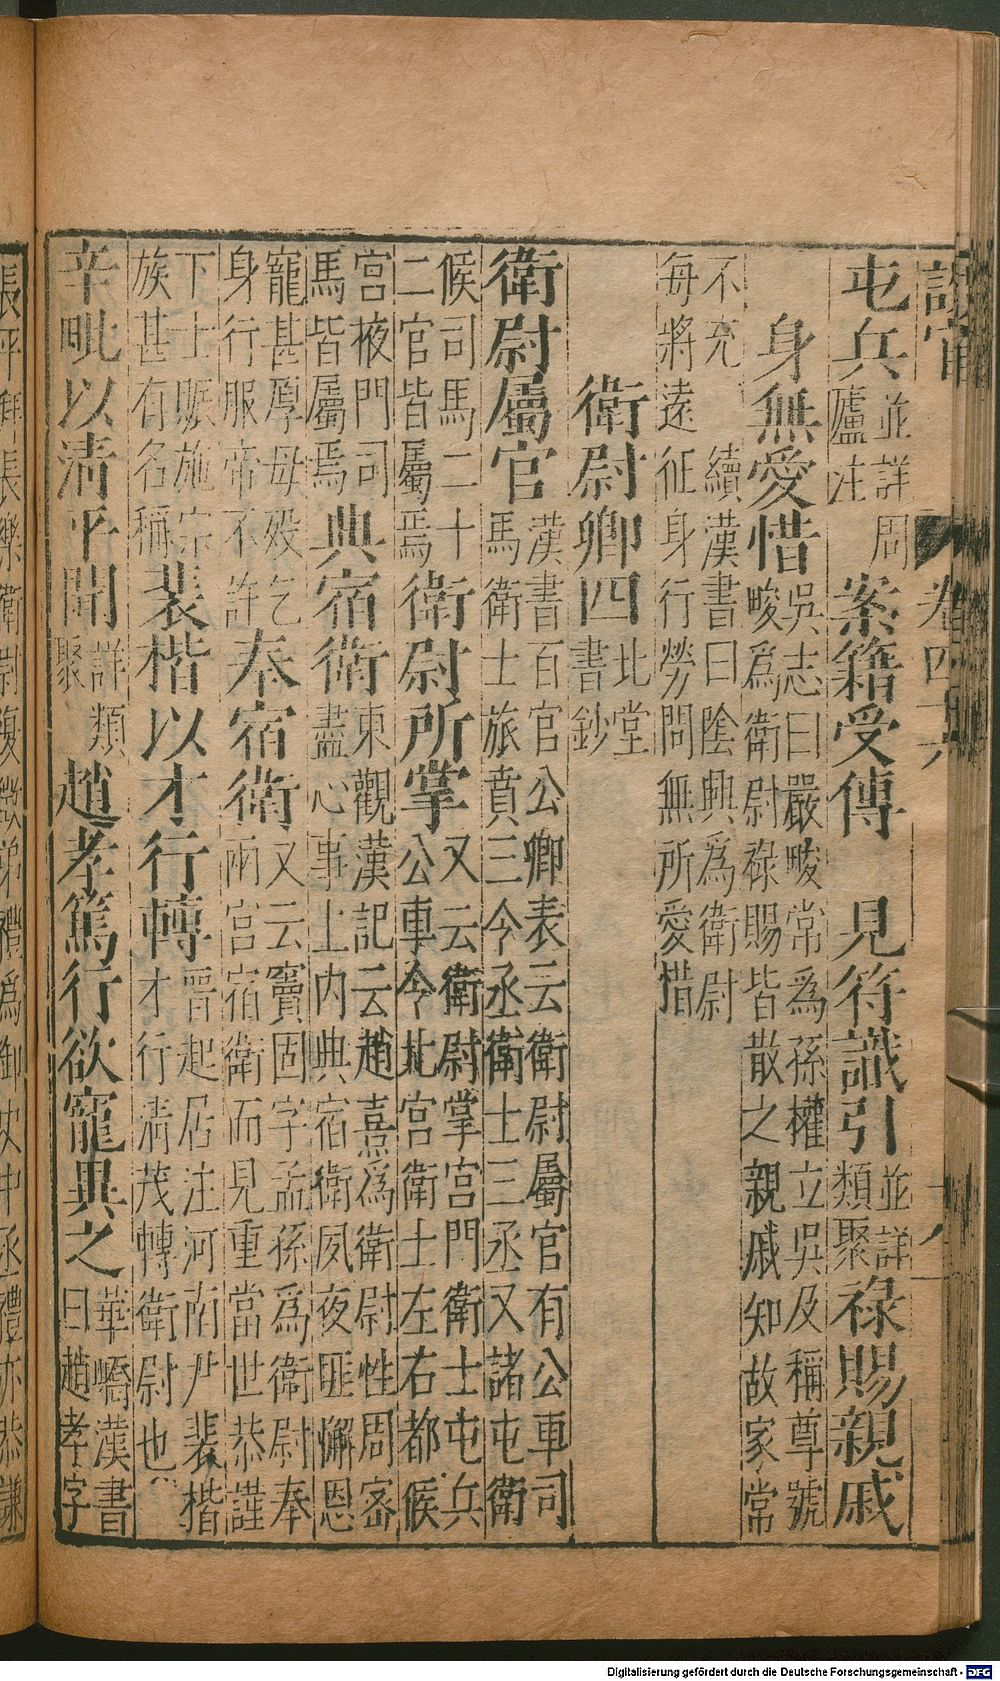 屯兵並詳周廬注案籍受傳　見符識引並詳類聚祿賜親戚
身無愛惜吳志曰嚴畯常為孫權立吳及稱尊號畯為衛尉祿賜皆散之親戚知故家常
不充　續漢書曰陰興為衛尉每將遠征身行勞問無所愛惜
衛尉卿四北堂書鈔
衛尉屬官漢書百官公卿表云衛尉屬官有公車司馬衛士旅賁三令丞衛士三丞又諸屯衛
候司馬二十二官皆屬焉衛尉所掌又云衛尉掌宮門衛士屯兵公車令北宮衛士左右都候
宮掖門司馬皆屬焉典宿衛東觀漢記云趙熹為衛尉性周密盡心事上內典宿衛夙夜匪懈恩
寵甚厚母歿乞身行服帝不許奉宿衛又云竇固字孟孫為衛尉奉兩宮宿衛而見重當世恭謹
下士賑施宗族甚有名稱裴楷以才行轉晉起居注河南尹裴楷才行清茂轉衛尉也
辛毗以清平聞詳類聚趙孝篤行欲寵異之華嶠漢書曰趙孝字
長平拜長樂衛尉復徵弟禮為御史中丞禮亦恭謙
Digitalisierung gefördert durch die Deutsche Forschungsgemeinschaft - DFG